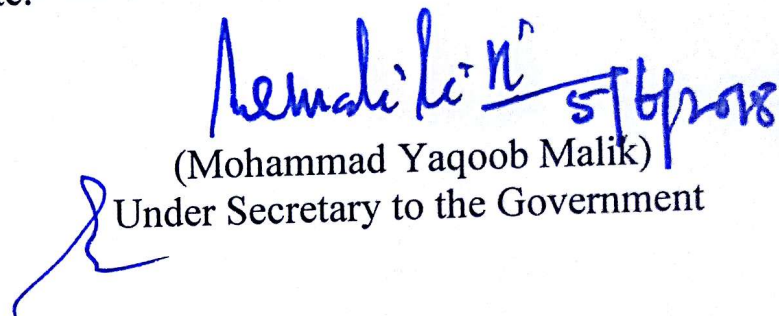 5/6/2018
(Mohammad Yaqoob Malik)
Under Secretary to the Government